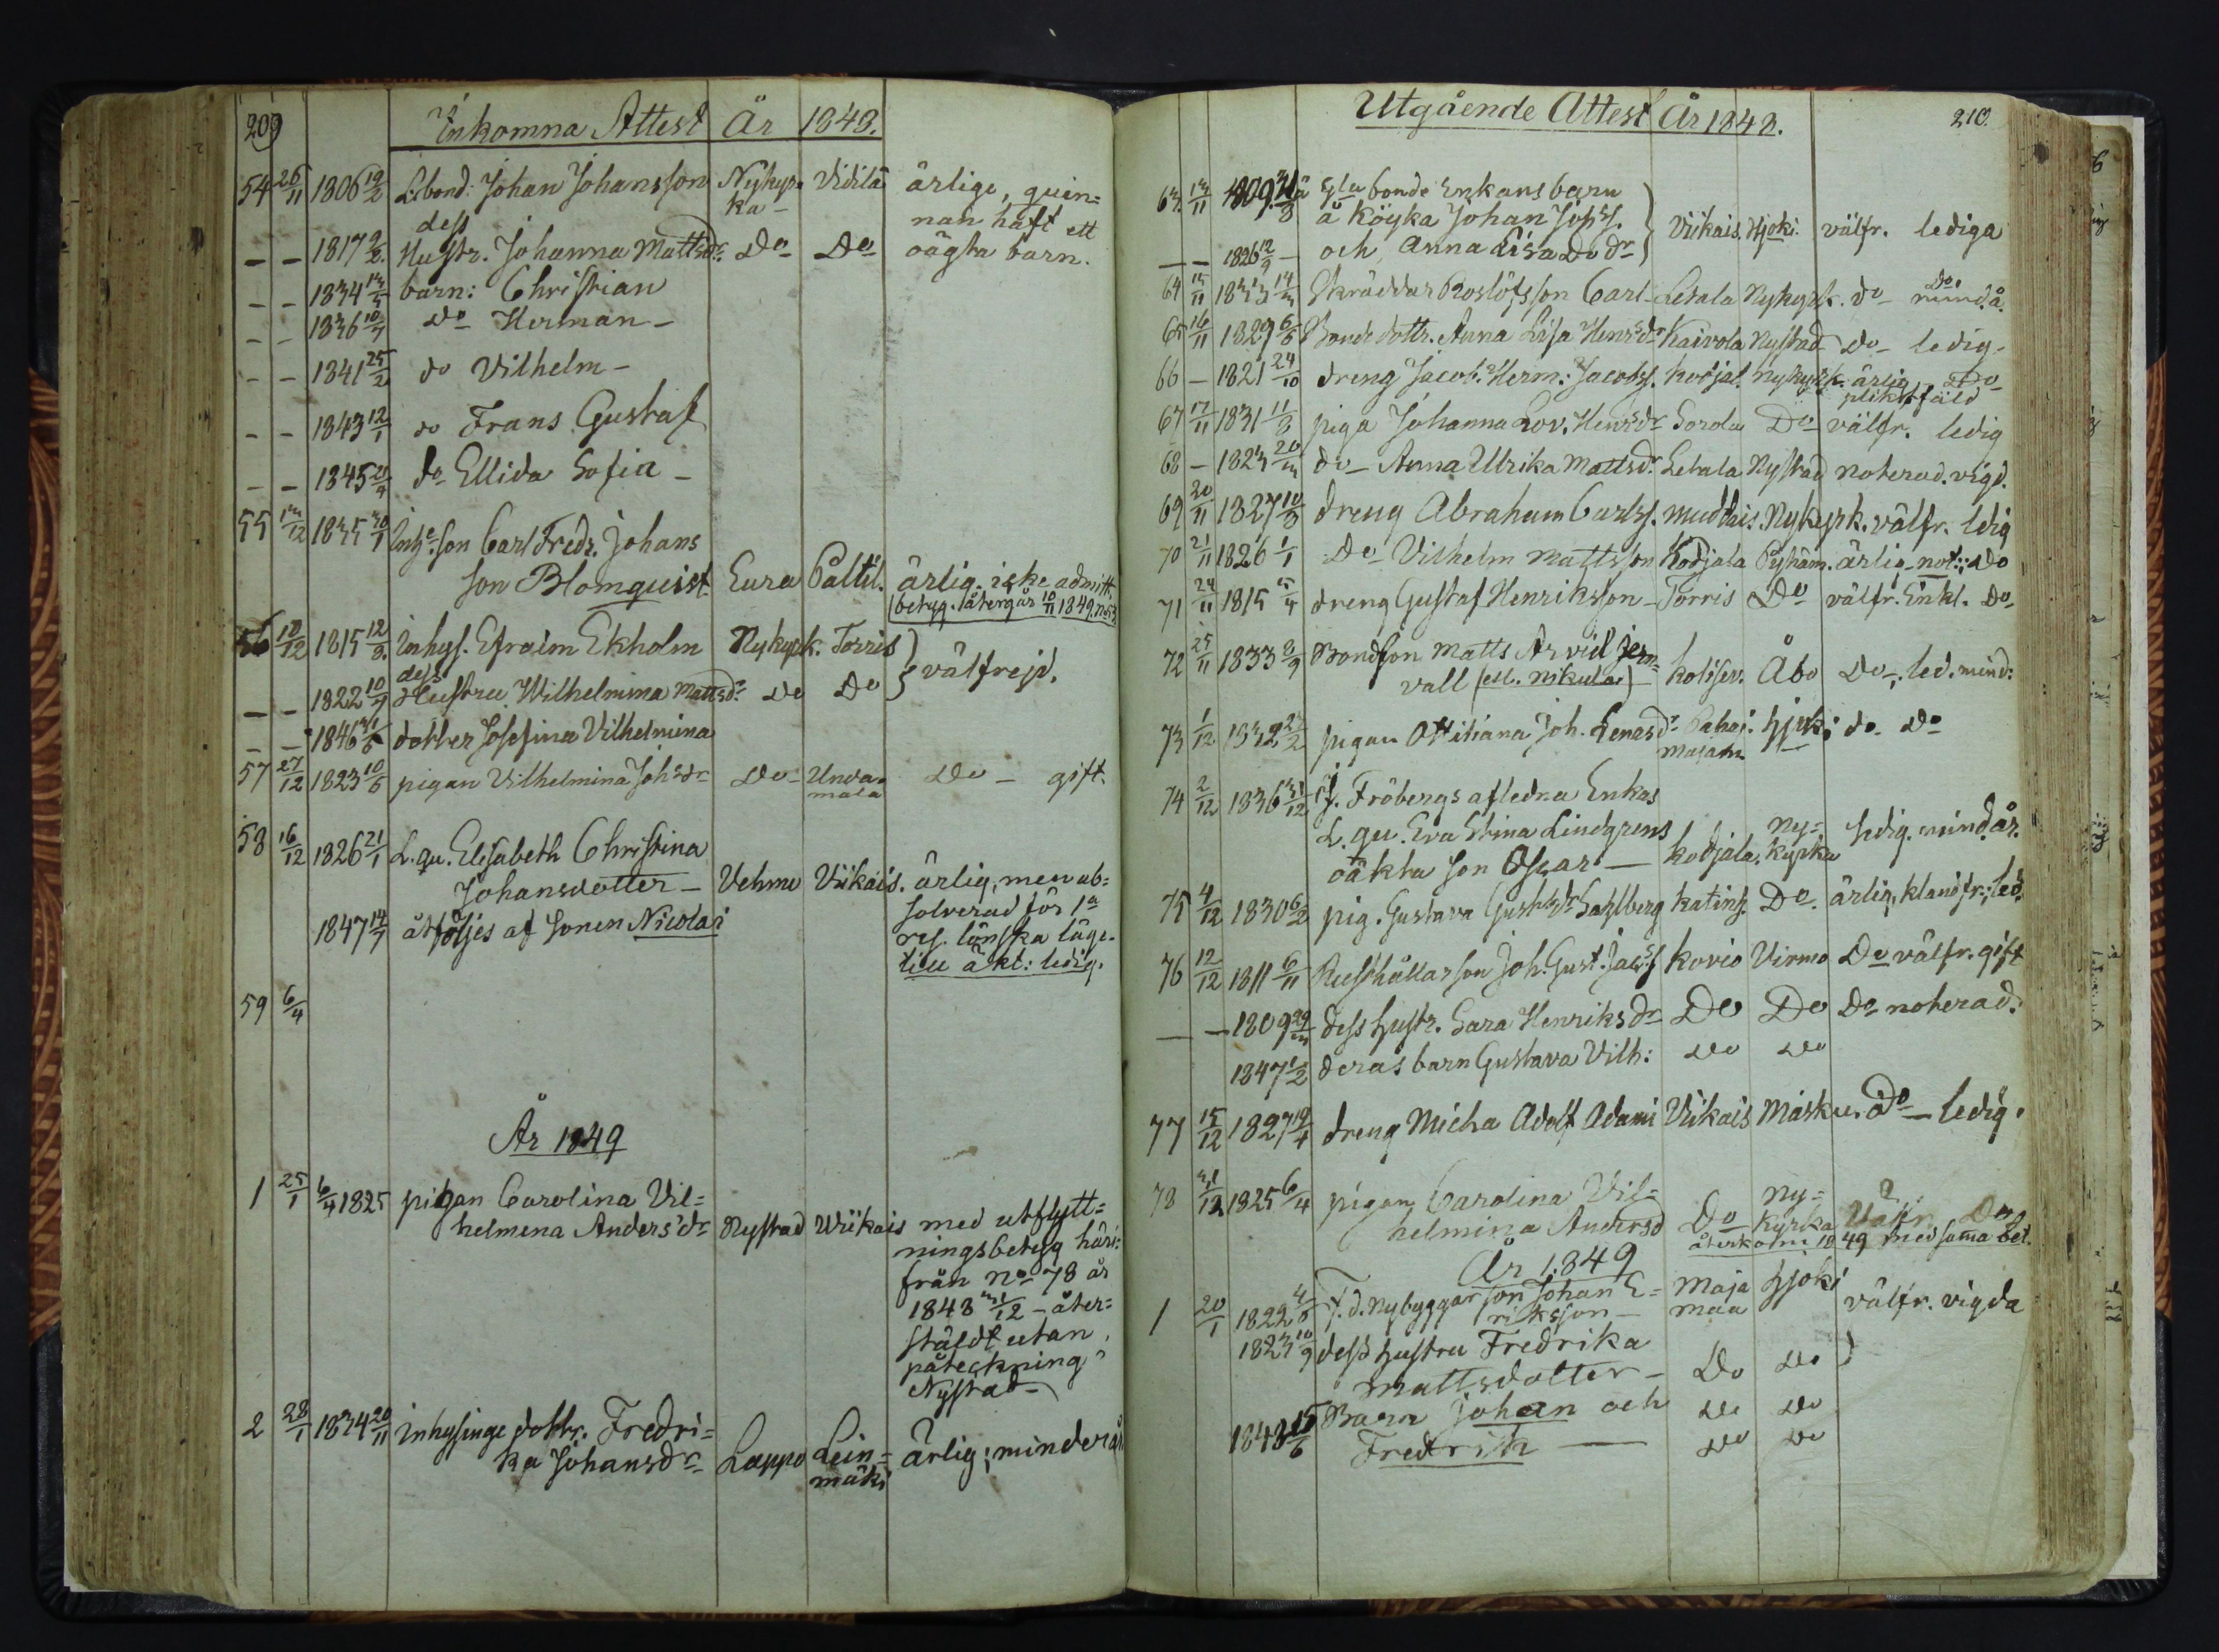 209
Inkomna Attest År 1848.
54 26/11 1806 19/2 L:bond: Johan Johansson Nykyr- Vidilä ärlige, quin=
dess ka- nan haft ett
— — 1817 9/2. Hustr. Johanna Mattsdr. Do Do oägta barn.
— — 1834 13/5 barn: Christian
— — 1836 10/7 do Herman —
— — 1841 25/2 do Vilhelm —
— — 1843 12/1 do Frans Gustaf
— — 1845 21/9 do Ellida Sofia —
55 13/12 1835 30/1 Inhs. son Carl Fredr. Johans
son Blomquist Eura Paltil. ärlig, icke admitt.
(betyg. återgår 10/11 1849
56 18/12 1815 12/9. Inhys. Efraim Ekholm Nykyrk. Torris
dess } välfrejd.
— — 1822 10/7 Hustru Wilhelmina Mattsdr Do Do
— — 1846 31/5 dotter Josefina Vilhelmina
57 27/12 1823 10/6 pigan Vilhelmina Johsdr Do- Unda- Do - gift.
mala
58 16/12 1826 21/1 L. qu. Elisabeth Christina
Johansdotter — Vehmo Viikais. ärlig, men ab=
solverad för 1a
1847 14/7 åtföljes af sonen Nicolai
res. lönska läge-
till äkt: ledig.
59 6/4
År 1849
1 25/1 6/4 1825 pigan Carolina Vil=
helmina Andersdr Nystad Wiikais med utflytt=
ningsbetyg häri=
från No 78 år
1848 31/12 - åter=
stäldt utan
påteckning i
Nystad —
2 28/1 1834 20/11 Inhysinge dottr. Fredri=
ka Johansdr Lappo Lein= Ärlig; minderår
mäki
Utgående Attest År 1848. 210.
63. 13/11 1809. bonde Enkans barn
å Köyka Johan Johss. } Viikais. Hjoki. välfr. lediga
— — 1826 12/9 — och Anna Lisa Do dr
64 15/11 1833 14/3 Skräddar Roslöfs son Carl - Letala Nykyrk. do - Do. mind.å.
65 16/11 1829 6/8 Bonde dottr. Anna Lisa Henrsdr Kaivola Nystad Do - ledig -
66 — 1821 24/10 dreng Jacob. Herm: Jacobss. Kodjal. Nykyrk. ärlig Do -
pliktfäld
67 17/11 1831 11/8 piga Johanna Lov. Henrsdr Sorola Do välfr. ledig
68 — 1823 20/3 do — Anna Ulrika Mattsdr. Letala Nystad noterad. vigd.
69 20/11 1827 10/8 dreng Abraham Carlss. Muddais. Nykyrk. välfr. ledig
70 21/11 1826 1/1 Do Vilhelm Mattsson Kodjala Pyhäm. ärlig - not:; do
71 24/11 1815 5/4 dreng Gustaf Henriksson — Torris Do välfr. Enkl. Do -
72 25/11 1833 8/9 Bondson Matts Arvid Jern=
vall (ell. Nikula) Koliser. Åbo Do -, led. mind:
73 1/12 1832 23/2 pigan Ottiliana Joh. Lenasdr Pahoj. Hjoki; do. Do
majam
74 2/12 1836 31/12 f. Fröbergs afledna Enkas
L. qu. Eva Stina Lindgrens Ny=
oäkta son Oscar — Kodjala. kyrka hdig. mind.år.
75 4/12 1830 6/2 pig. Gustava Gustfsdr Sahlberg Katinh. Do. ärlig, klandfr.; led.
76 12/12 1811 6/11 Rusthållarson Joh. Gust. Jacss Kovio Virmo Do välfr. gift
— — 1809 29/3 dess hustr. Sara Henriksdr Do Do Do noterad.
1847 1/2 deras barn Gustava Vilh: Do Do
77 15/12 1827 19/4 dreng Micha Adolf Adami Viikais Masku. Do — ledig.
78 31/12 1825 6/4 pigan Carolina Vil= Ny=
helmina Andersd Do kyrka Välfr. Do
återkom: 1849 med samma bet.
År 1849
1 20/1 1822 4/8 F. d. Nybyggar son Johan E= Maja Hjoki
riksson — maa välfr. vigda
1823 10/9 dess hustru Fredrika
Mattsdotter — Do Do
1848 15/6 Barn Johan och Do Do
Fredrik — Do Do